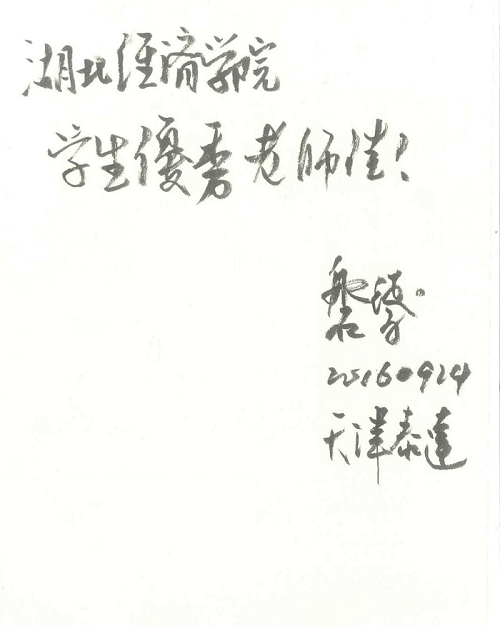 湖北经济学院
学生優秀老师佳！
20160924
天津泰達